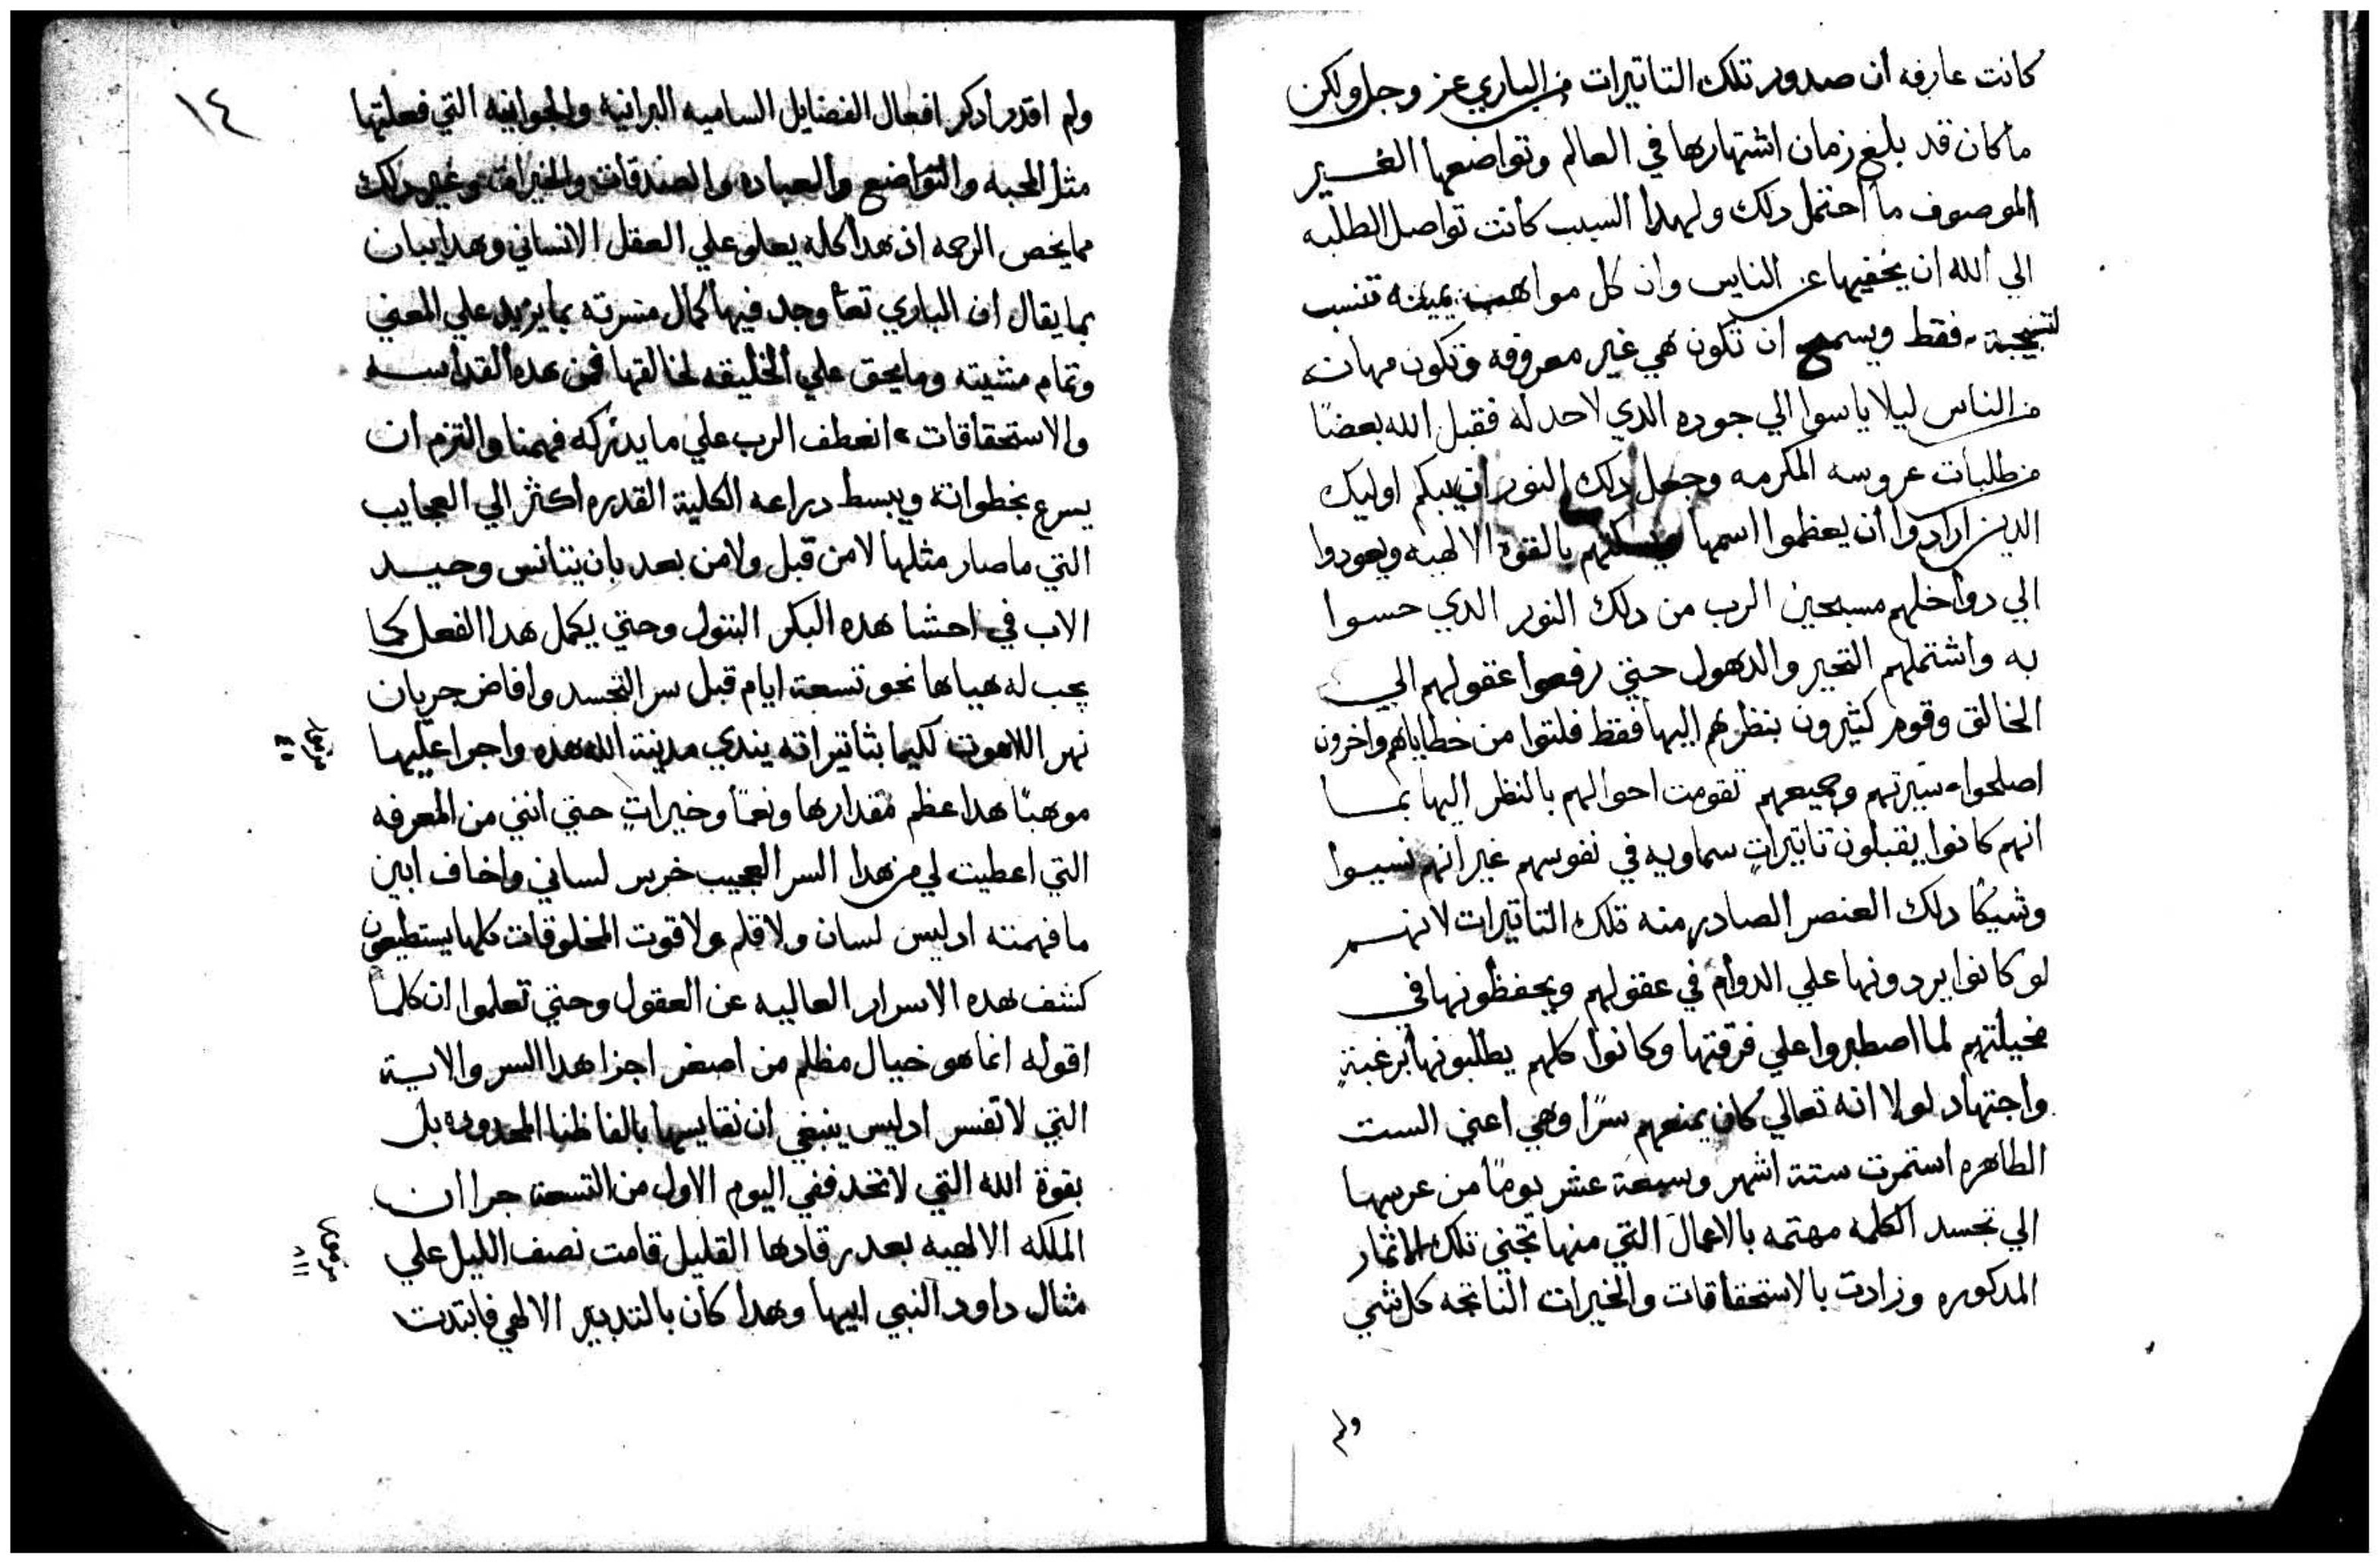 كانت عارفه ان صدور تلك التاتيرات من الباري عز وجل ولكن
ما كان قد بلغ زمان اشتهارها في العالم وتواضعها الغير
الموصوف ما احتمل دلك ولهدا السبب كانت تواصل الطلبه
الي الله ان يخفيها عن الناس وان كل مواهب يمينه تنسب
لتسبحته فقط ويسمح ان تكون هي غير معروفه وتكون مهانه
من الناس ليلا ياسوا الي جوده الدي لاحد له فقبل الله بعضًا
من طلبات عروسه المكرمه وجعل دلك النور ان يبكم اوليك
الدين ارادوا ان يعظموا اسمها ويسكتهم بالقوة الالهيه ويعودوا
الي دواخلهم مسبحين الرب من دلك النور الدي حسوا
به واشتملهم التحير والدهول حتي رفعوا عقولهم الي
الخالق وقوم كثيرون بنظرهم اليها فقط فلتوا من خطاياهم واخرون
اصلحوا سيرتهم وجميعهم تقومت احوالهم بالنظر اليها بما
انهم كانوا يقبلون تاتيراتٍ سماويه في نفوسهم غير انهم نسيوا
وشيكًا دلك العنصر الصادر منه تلك التاتيرات لانهم
لو كانوا يردونها علي الدوام في عقولهم ويحفظونها في
مخيلتهم لما اصطبروا علي فرقتها وكانوا كلهم يطلبونها برغبةٍ
واجتهاد لولا انه تعالي كان يمنعهم سرًا وهي اعني الست
الطاهره استمرت ستة اشهر وسبعة عشر يومًا من عرسها
الي تجسد الكلمه مهتمه بالاعمال التي منها تجني تلك الاثمار
المدكوره وزادت بالاستحقاقات والخيرات الناتجه كل شي
ولم
١٤
ولم اقدر ادكر افعال الفضايل الساميه البرانيه والجوانيه التي فعلتها
مثل المحبه والتواضع والعباده والصدقات والخيرات وغير دلك
مما يخص الرحمه اذ هدا كله يعلو علي العقل الانساني وهدا يبان
بما يقال ان الباري تعا وجد فيها كمال مسرته بما يزيد علي المعني
وتمام مشيته وما يحق علي الخليقه لخالقها فمن هده القداسه
والاستحقاقات انعطف الرب علي ما يدركه فهمنا والتزم ان
يسرع بخطواته ويبسط دراعه الكلية القدره اكثر الي العجايب
التي ما صار مثلها لا من قبل ولا من بعد بان يتانس وحيد
الاب في احشا هده البكر البتول وحتي يكمل هدا الفعل كما
يجب له هياها نحو تسعة ايام قبل سر التجسد وافاض جريان
نهر اللاهوت لكيما بتاتيراته يندي مدينة الله هده واجرا عليها
موهبًا هدا عظم مقدارها ونعمًا وخيراتٍ حتي انني من المعرفه
التي اعطيت لي من هدا السر العجيب خرس لساني واخاف ابين
ما فهمته اد ليس لسان ولا قلم ولا قوت المخلوقات كلها يستطيعون
كشف هده الاسرار العاليه عن العقول وحتي تعلموا ان كلما
اقوله انما هو خيال مظلم من اصغر اجزا هدا السر والاية
التي لا تفسر اد ليس ينبغي ان نقايسها بالفاظنا المحدوده بل
بقوة الله التي لا تحد ففي اليوم الاول من التسعة جرا ان
الملكه الالهيه بعد رقادها القليل قامت نصف الليل علي
مثال داود النبي ابيها وهدا كان بالتدبير الالهي فابتدت